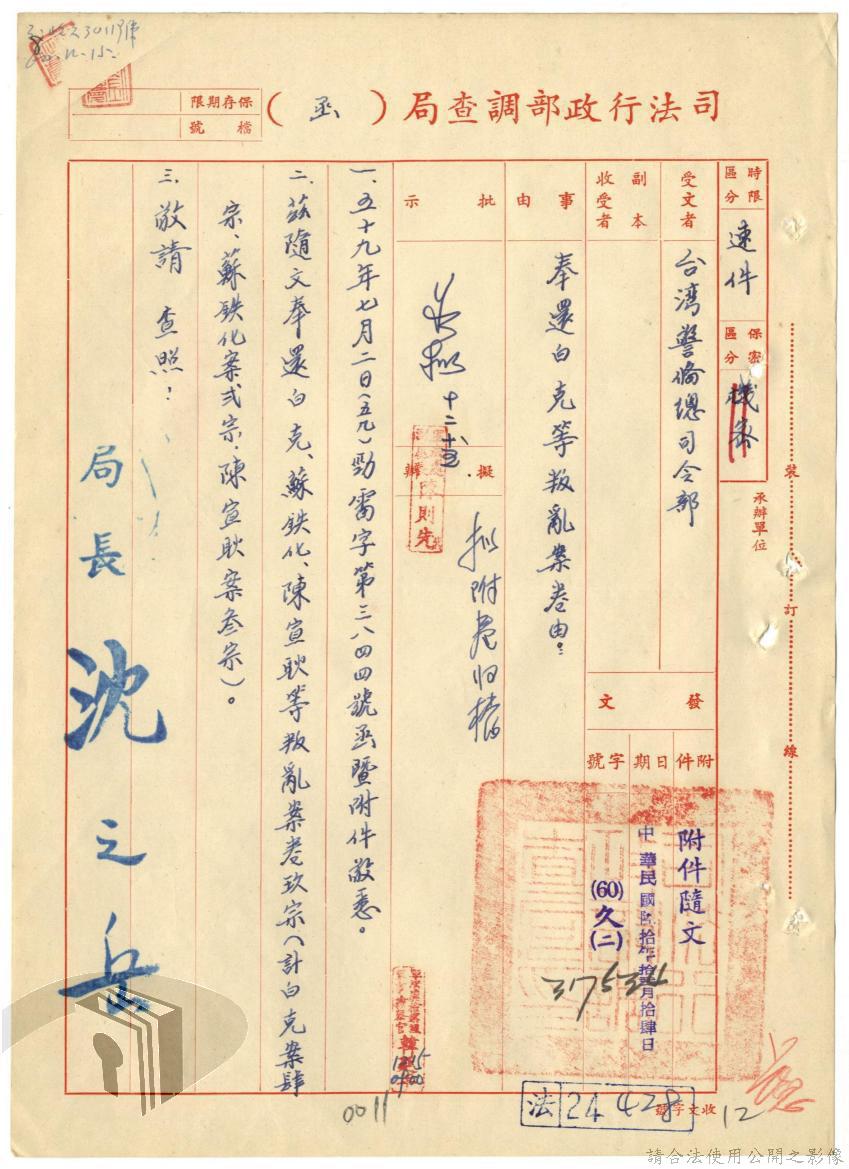 司法行政部調查局（函）
保存期限
檔號
時限區分
速件
保密區分
機密
承辦單位
受文者
台湾警備總司令部
副本收受者
發文
附件
附件隨文
日期
中華民國陸拾年拾貳月拾肆日
字號
(60)久(二)
37534
事由
奉還白克等叛亂案卷由：
批示
十二、十五
擬辦
拟附卷归檔
陳則先
一、五十九年七月二日(五九)勁需字第三八四四號函暨附件敬悉。
二、茲隨文奉還白克、蘇鉄化、陳宣耿等叛亂案卷玖宗（計白克案肆
宗、蘇鉄化案弍宗、陳宣耿案叁宗）。
三、敬請 查照！
局長 沈之岳
裝
訂
線
1215
0900
0011
收文字號
法 24428
12
請合法使用公開之影像